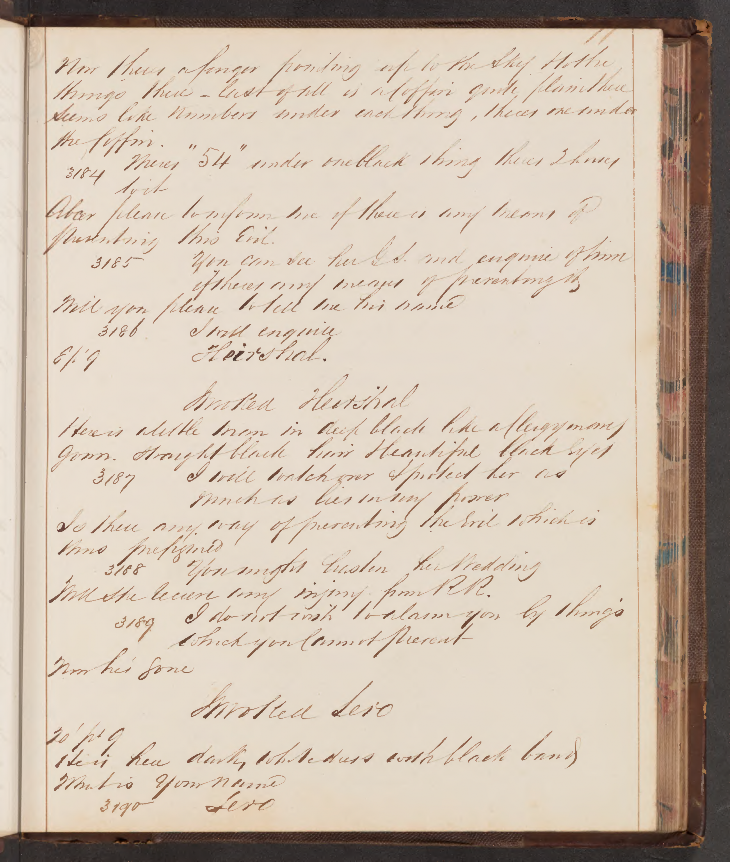 Now theres a finger pointing up to the sky & other
things there – last of all is a Coffin quite plain there
seems like numbers under each thing, theres one under
the Coffin.
3184 Theres "54" under one black thing theres 2 horses
to it
please to inform me if there is any means of
preventing this Evil.
3185 You can see her G.S. and enquire of him
if theres any means of preventing it
Will you please to tell me his name
3186 I will enquire
9 Heirshal.
Invoked Heirshal
Here is a little man in deep black like a Clergymans
Gown. straight black hair & beautiful black Eyes
3187 I will watch over & protect her as
much as lies in my power
Is there any way of preventing the Evil which is
thus prefigured
3188 You might hasten her Wedding
Will she receive any injury from R.R.
3189 I do not wish to alarm you by things
which you Cannot prevent
Now he's gone
Invoked Zero
9
He is here dark, white dress with black band
What is Your name
3190 Zero